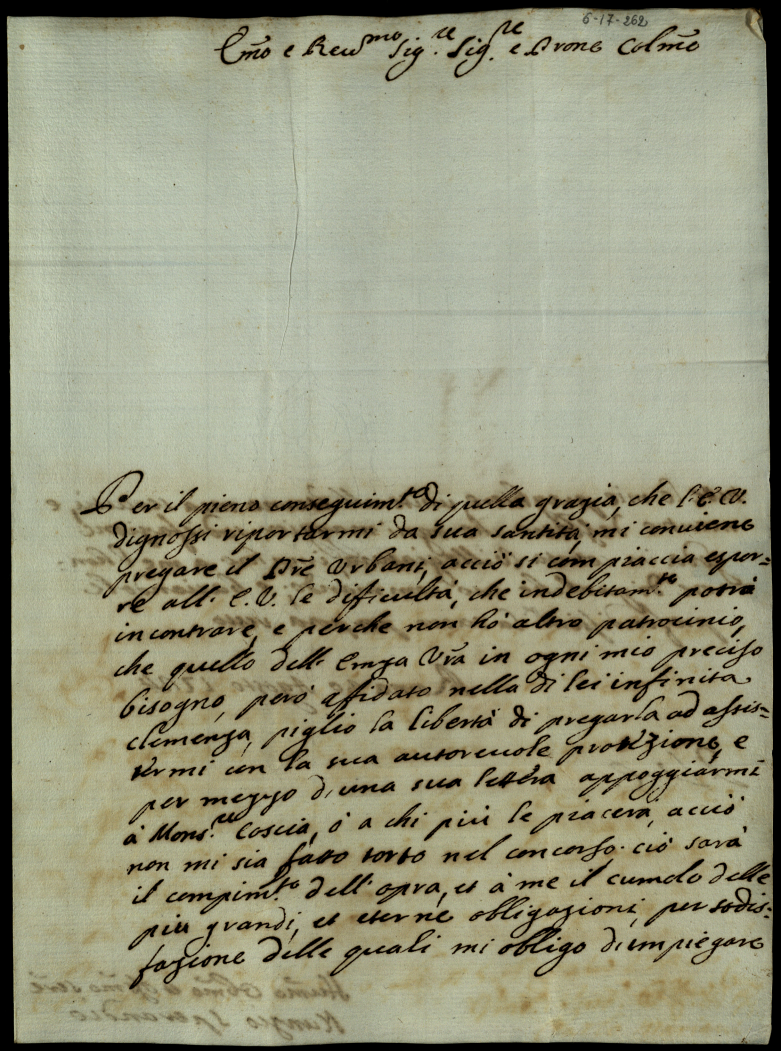 6-17-262
Emo e Reu.mo Sig.re Sig.re e Prone Colmo
Per il pieno conseguim.to di quella grazia, che l'E.V.
dignossi riportarmi da sua santità, mi conviene
pregare il Pre Urbani, acciò si compiaccia espor=
re all'E.V. le dificultà, che indebitam.te potrà
incontrare, e perche non hò altro patrocinio,
che quello dell'Emza Vra in ogni mio preciso
bisogno, però affidato nella di lei infinita
clemenza, piglio la libertà di pregarla ad assis=
termi con la sua autoreuole protezzione, e
per mezzo d'una sua lettera appoggiarmi
à Mons.re Coscia, ò a chi più le piacerà, acciò
non mi sia fatto torto nel concorso. ciò sarà
il compim.to dell'opra, et à me il cumolo delle
più grandi, et eterne obligazioni, per sodis=
fazione delle quali mi obligo d'impiegare